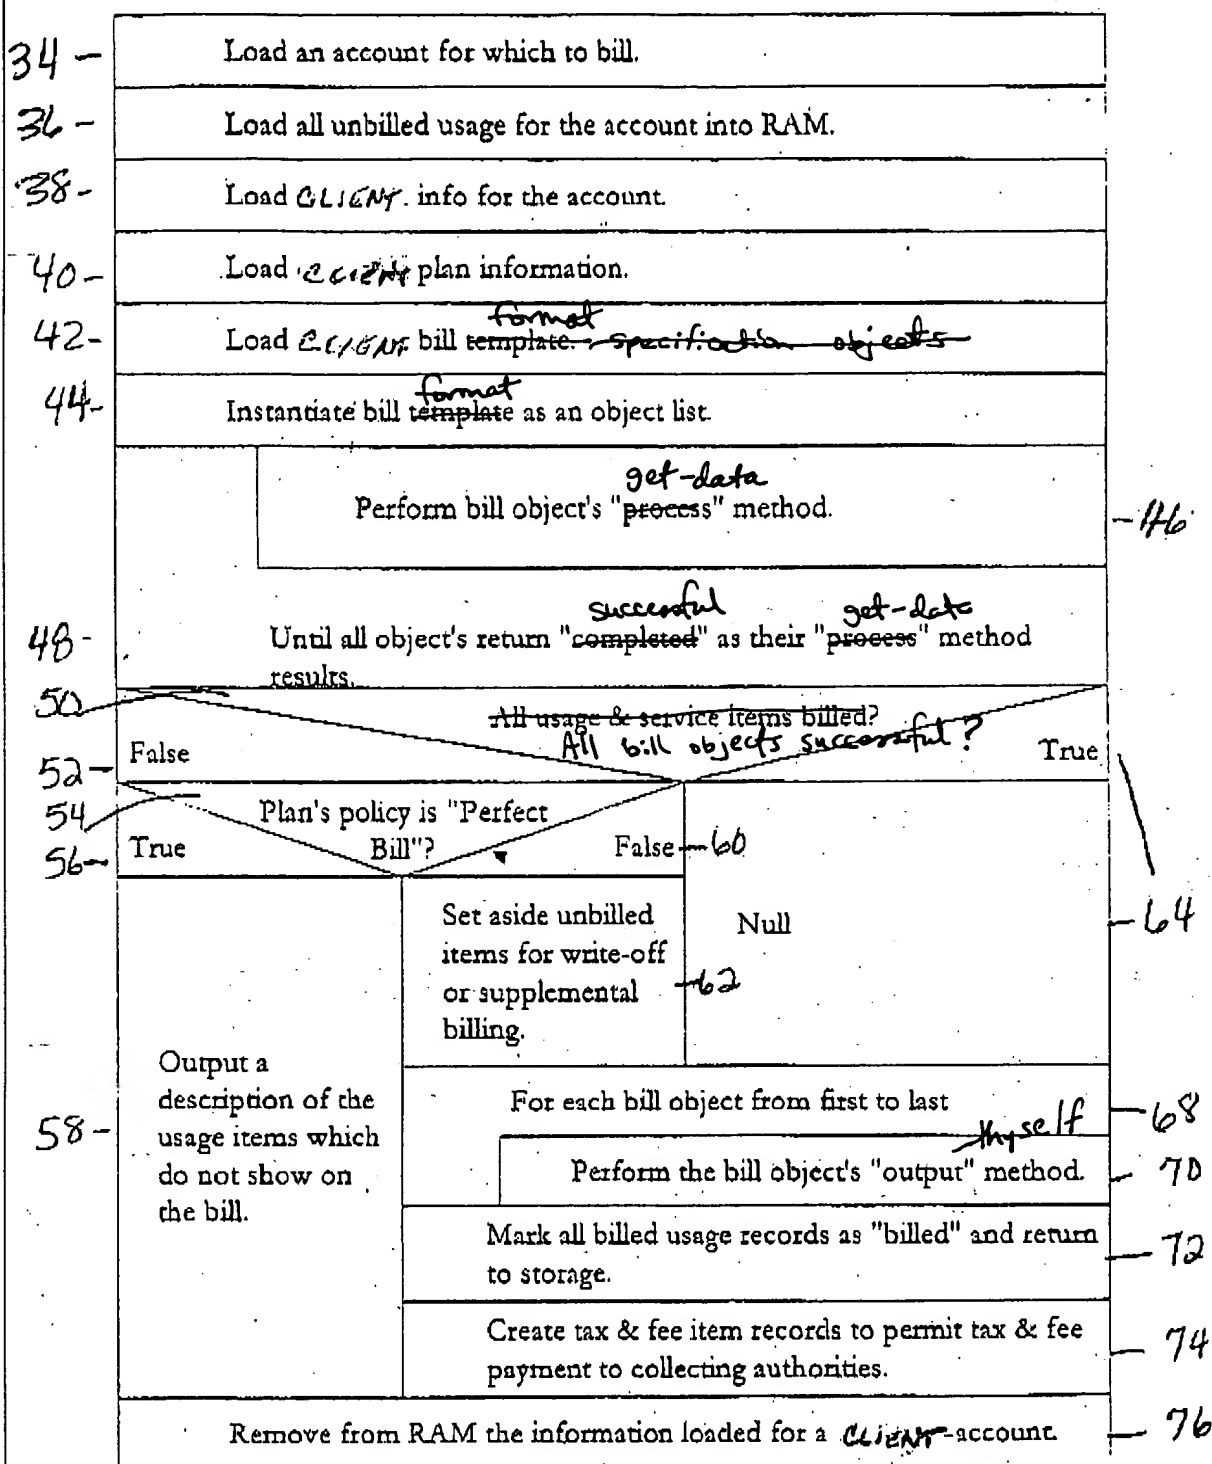 34 - Load an account for which to bill.
36 - Load all unbilled usage for the account into RAM.
38 - Load CLIENT info for the account.
40 - Load CLIENT plan information.
format
42 - Load CLIENT bill template. specification objects
format
44 - Instantiate bill template as an object list.
get-data
Perform bill object's "process" method.
- 46
successful get-data
48 - Until all object's return "completed" as their "process" method
results.
50
All usage & service items billed?
All bill objects successful?
False True
52 -
54 Plan's policy is "Perfect
Bill"?
56 - True False - 60
Set aside unbilled
items for write-off
or supplemental
billing.
- 62
Null
- 64
Output a
description of the
usage items which
do not show on
the bill.
58 -
For each bill object from first to last
- 68
thyself
Perform the bill object's "output" method.
- 70
Mark all billed usage records as "billed" and return
to storage.
- 72
Create tax & fee item records to permit tax & fee
payment to collecting authorities.
- 74
Remove from RAM the information loaded for a CLIENT-account.
- 76